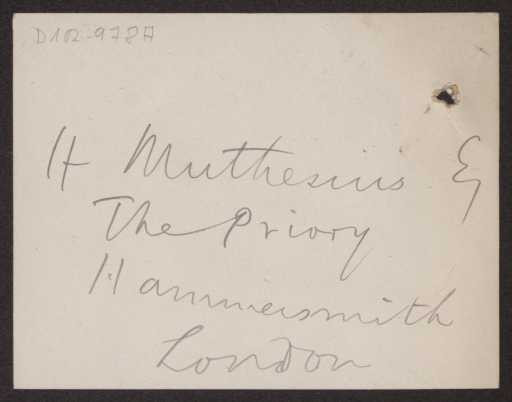 D102-978A
H Muthesius Eq
The Priory
Hammersmith
London